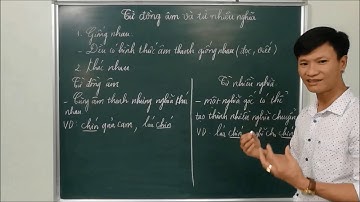 Từ đồng âm và từ nhiều nghĩa
1. Giống nhau:
- Đều có hình thức âm thanh giống nhau (đọc, viết)
2. Khác nhau
Từ đồng âm
- Cùng âm thanh nhưng nghĩa khác nhau
VD: chín quả cam, lúa chín
Từ nhiều nghĩa
- một nghĩa gốc có thể
tạo thành nhiều nghĩa chuyển
VD: lúa chín